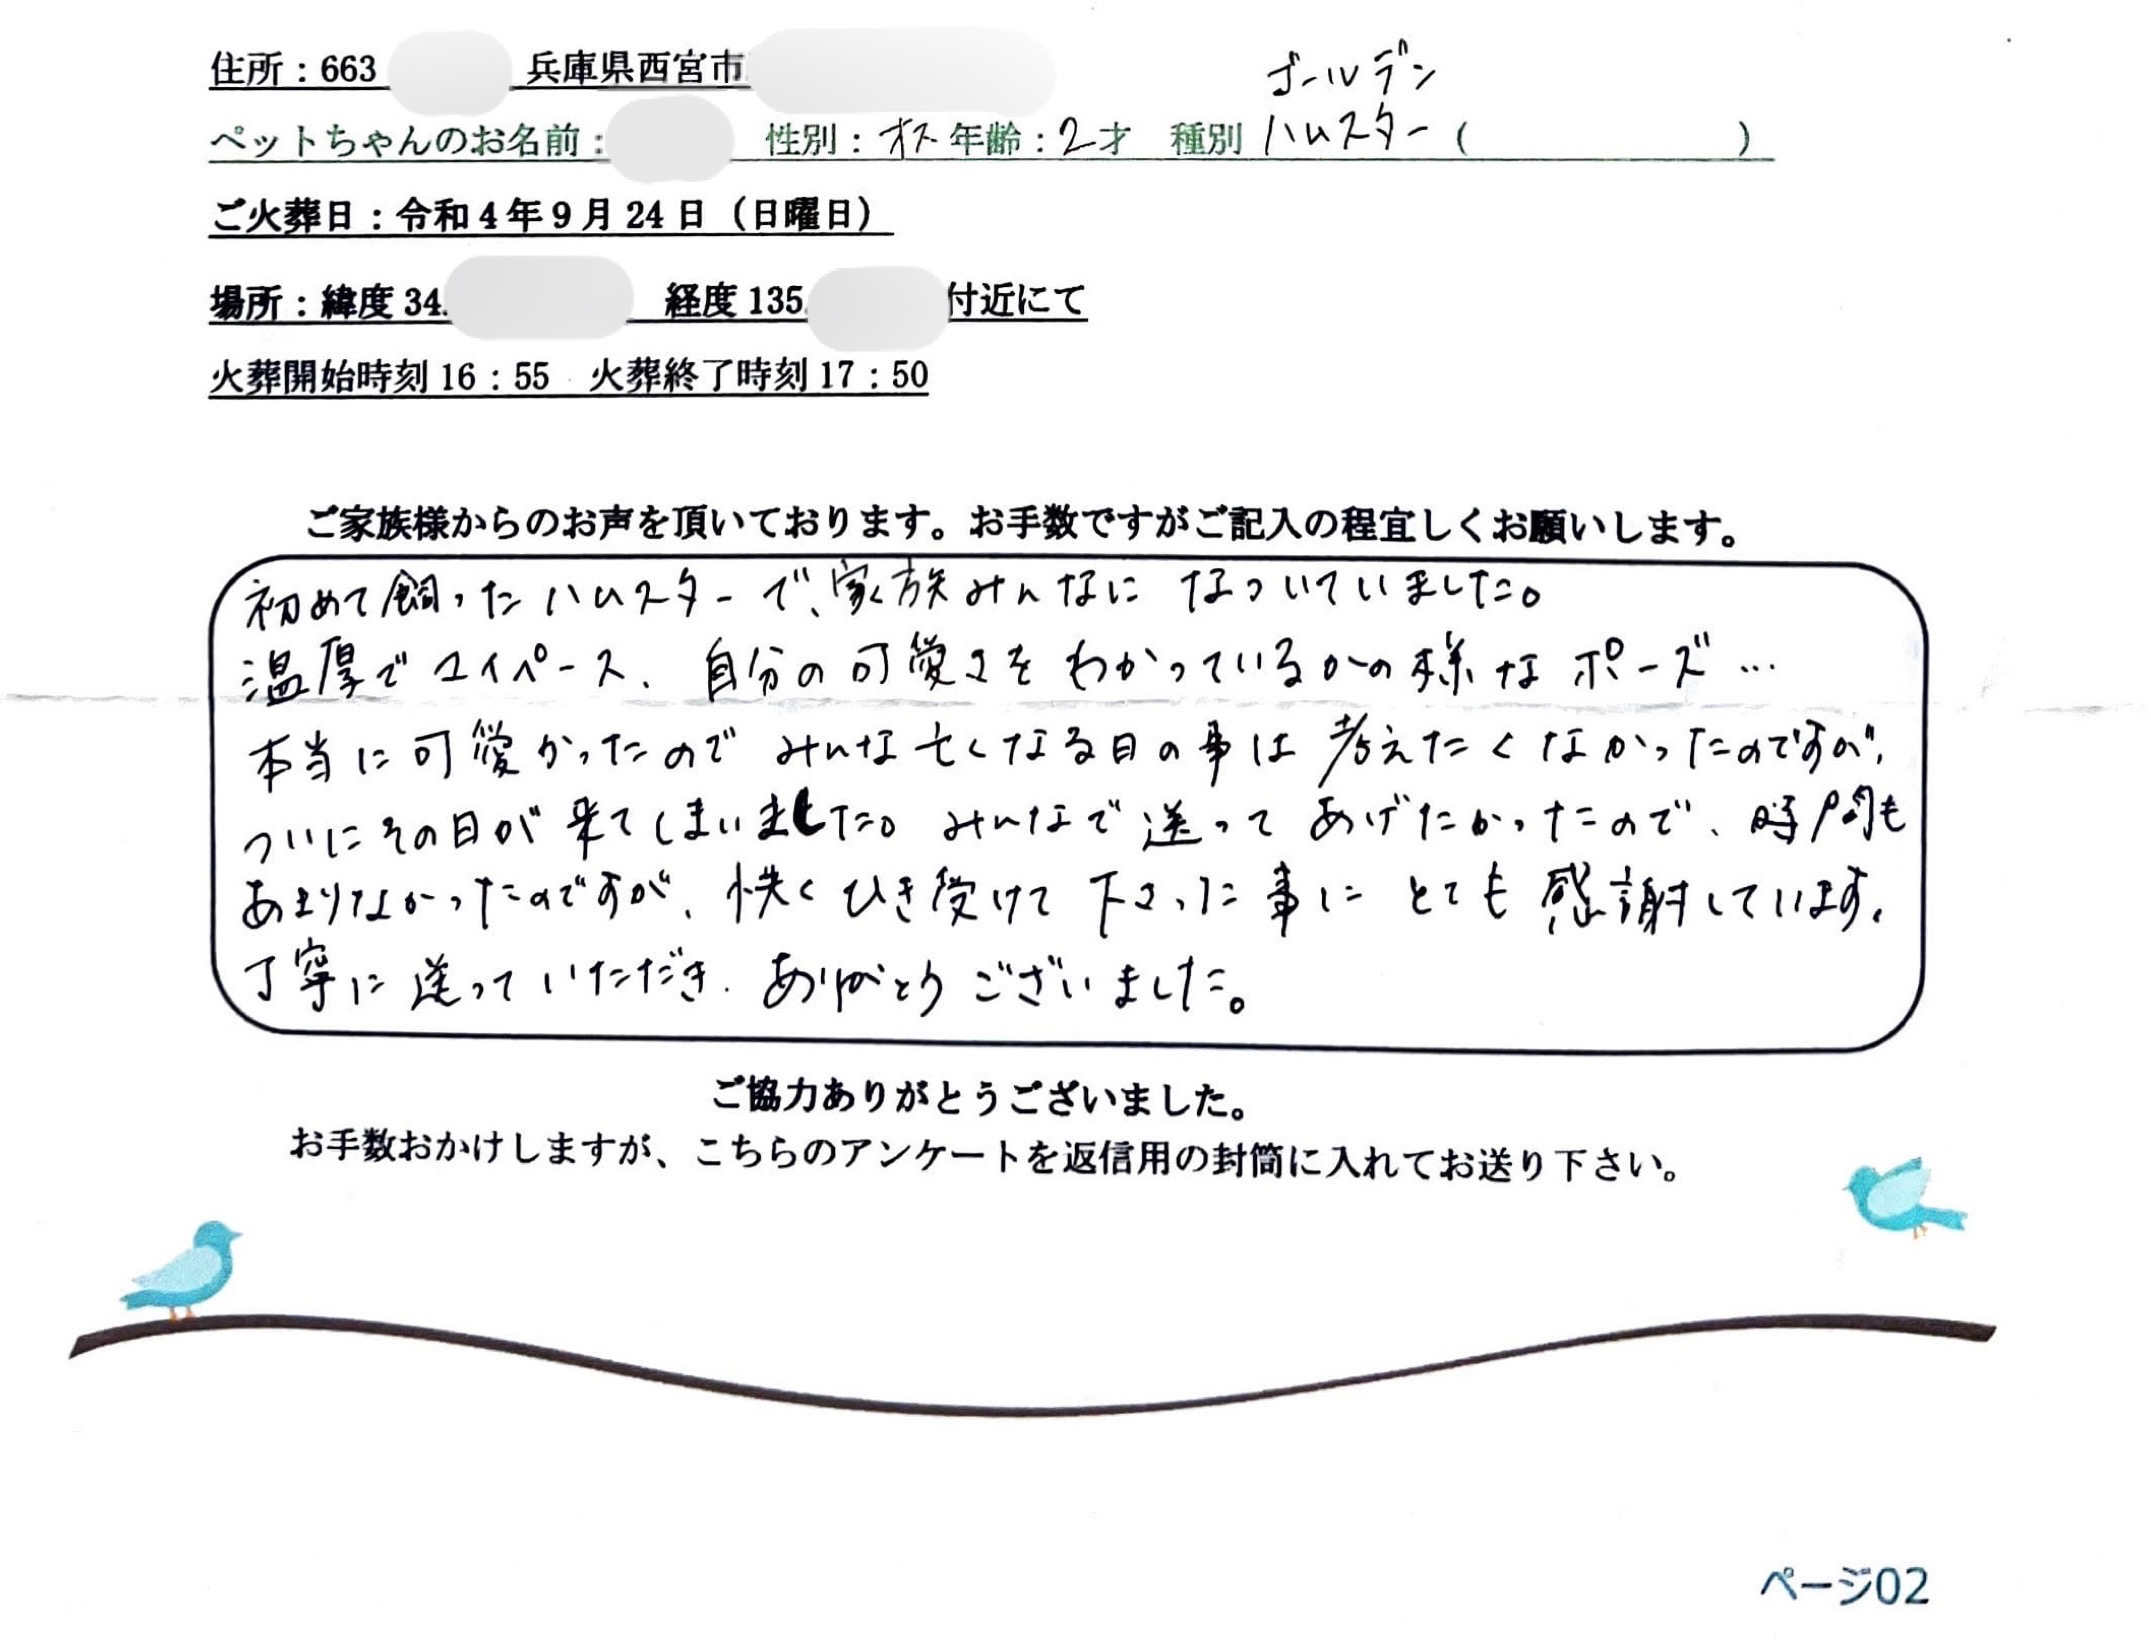 住所：663 兵庫県西宮市
ゴールデン
ペットちゃんのお名前： 性別：オス 年齢：2才 種別 ハムスター（ ）
ご火葬日：令和4年9月24日（日曜日）
場所：緯度34. 経度135. 付近にて
火葬開始時刻16：55 火葬終了時刻17：50
ご家族様からのお声を頂いております。お手数ですがご記入の程宜しくお願いします。
初めて飼ったハムスターで、家族みんなになついていました。
温厚でマイペース、自分の可愛さをわかっているかの様なポーズ…
本当に可愛かったのでみんな亡くなる日の事は考えたくなかったのですが、
ついにその日が来てしまいました。みんなで送ってあげたかったので、時間も
あまりなかったのですが、快くひき受けて下さった事にとても感謝しています。
丁寧に送っていただき、ありがとうございました。
ご協力ありがとうございました。
お手数おかけしますが、こちらのアンケートを返信用の封筒に入れてお送り下さい。
ページ02